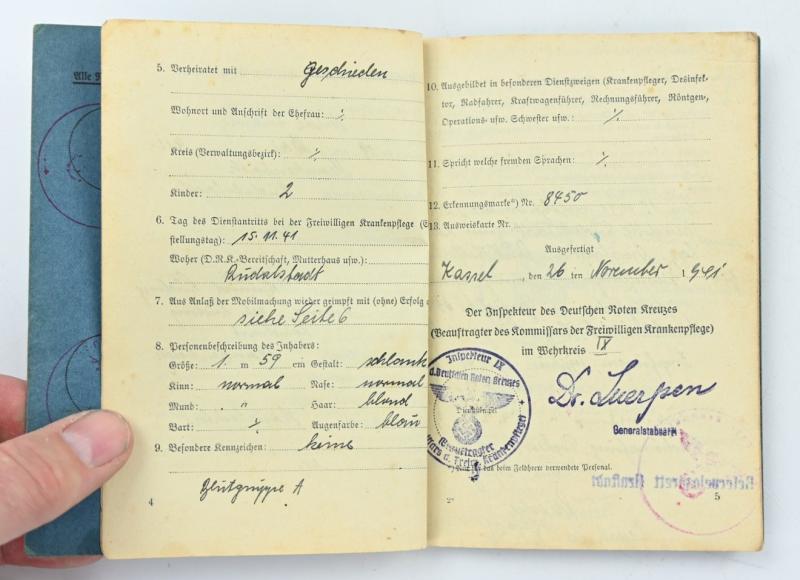 Alle
5. Verheiratet mit Geschieden
Wohnort und Anschrift der Ehefrau: ·/.
Kreis (Verwaltungsbezirk): ·/.
Kinder: 2
6. Tag des Dienstantritts bei der Freiwilligen Krankenpflege (E
stellungstag): 15.11.41
Woher (D.R.K.-Bereitschaft, Mutterhaus usw.):
Rudolstadt
7. Aus Anlaß der Mobilmachung wieder geimpft mit (ohne) Erfolg a
siehe Seite 6
8. Personenbeschreibung des Inhabers:
Größe: 1 m 59 cm Gestalt: schlank
Kinn: normal Nase: normal
Mund: " Haar: blond
Bart: ·/. Augenfarbe: blau
9. Besondere Kennzeichen: keine
Blutgruppe A
4
10. Ausgebildet in besonderen Dienstzweigen (Krankenpfleger, Desinfek-
tor, Radfahrer, Kraftwagenführer, Rechnungsführer, Röntgen-,
Operations- usw. Schwester usw.: ·/.
11. Spricht welche fremden Sprachen: ·/.
12. Erkennungsmarke*) Nr. 8450
13. Ausweiskarte Nr.
Ausgefertigt
Kassel, den 26 ten November 1941
Der Inspekteur des Deutschen Roten Kreuzes
(Beauftragter des Kommissars der Freiwilligen Krankenpflege)
im Wehrkreis IX
Inspekteur IX
d. Deutschen Roten Kreuzes
Dienstsiegel
Beauftragter
Kommissars d. Freiw. Krankenpflege
Dr.
Generalstabsarzt
das beim Feldheere verwendete Personal.
Reservelazarett Arnstadt
2*
5